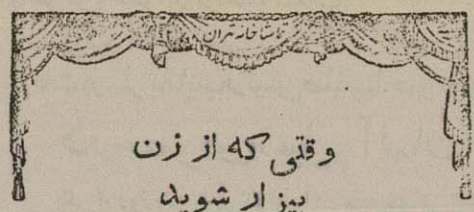 تماشاخانه تهران
وقتی که از زن
بیزار شوید